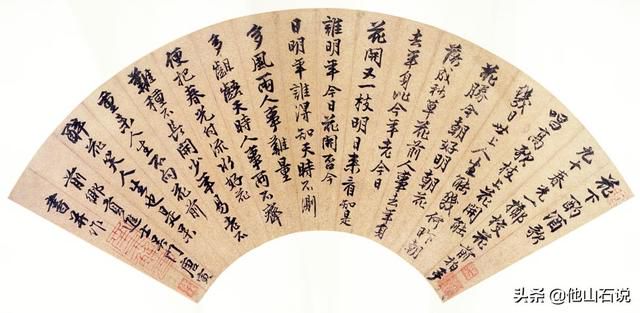 花下酌酒歌
九十春光一擲梭花前酌酒
唱高歌枝上花開能
幾日世上人生能幾何昨朝
花勝今朝好明朝花
落成秋草花前人是去年身
去年身比今年老今日
花開又一枝明日来看知是
誰明年今日花開否今
日明年誰得知天時不測
多風雨人事難量
多齟齬天時人事兩不齊
便把春光付流水好花
難種不長開少年易老不
重来人生不向花前
醉花笑人生也是呆
前鄉貢進士吳門唐寅
書并作
头条 @他山石说